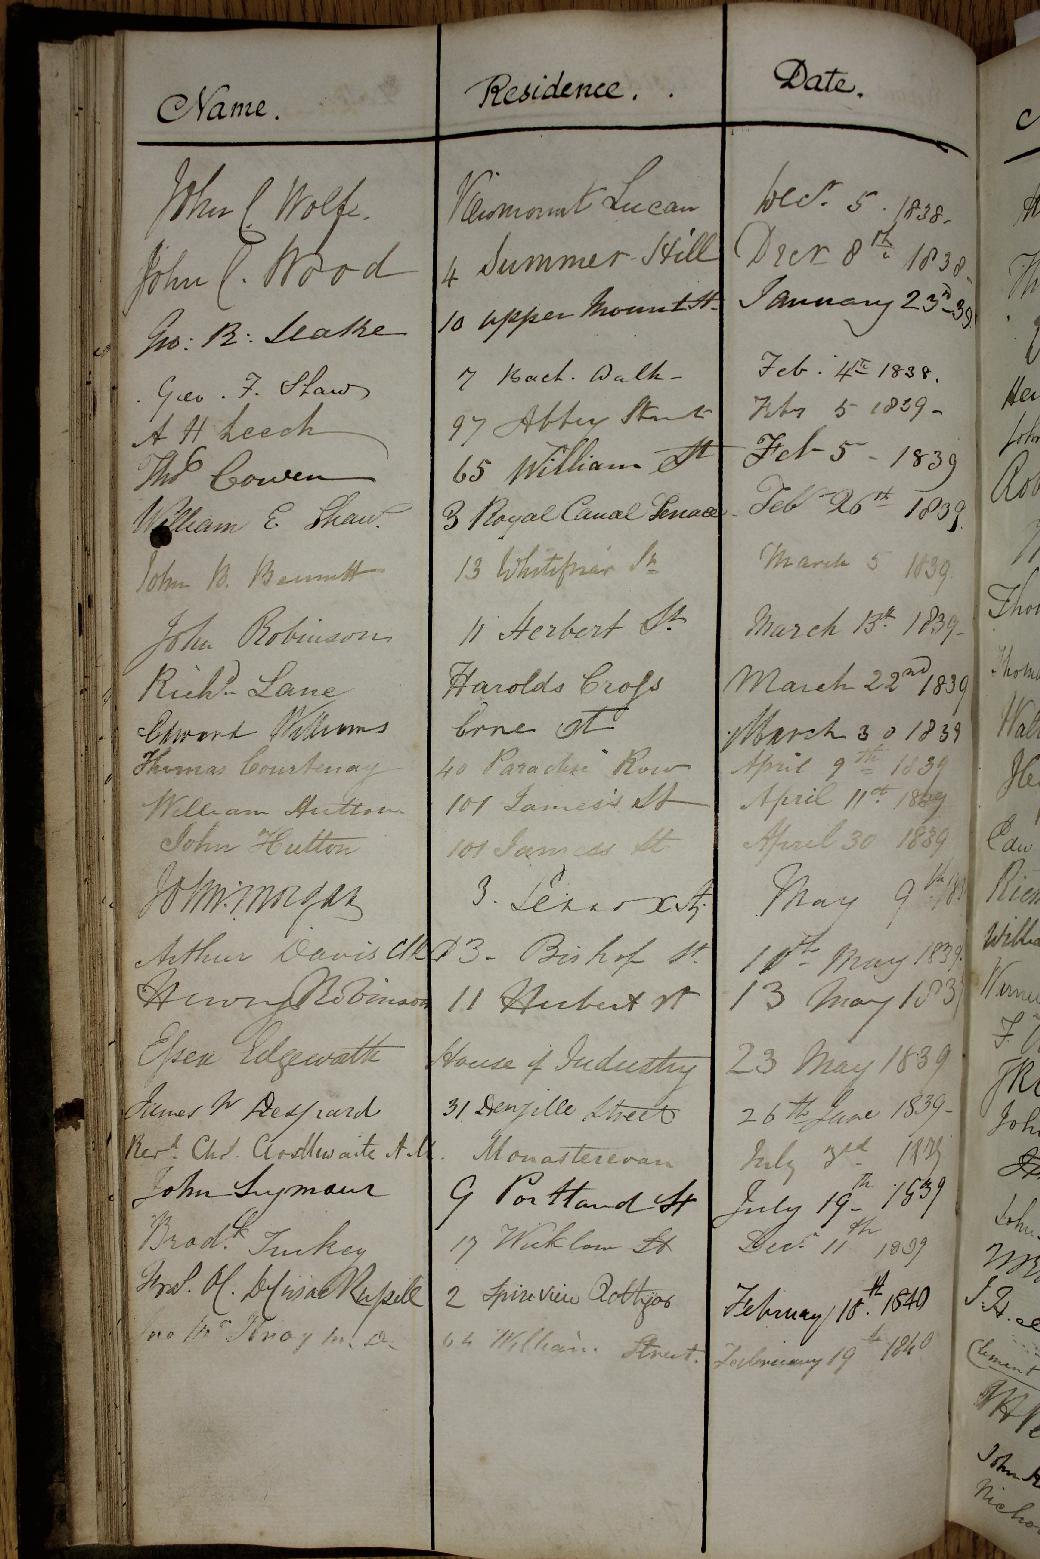 Name. Residence. Date.
John C. Wolfe. Viewmount Lucan Decr. 5. 1838.
John C. Wood 4 Summer Hill Decr 8th 1838
Jno: R: Leake 10 upper Mount St. January 23rd 39
Geo. F. Shaw 7 Bach. Walk Feb. 4th 1838.
A H Leech 97 Abbey Street Feby 5 1839
Thos Cowen 65 William St Feb 5 - 1839
William E Shaw. 3 Royal Canal Terrace Feby 26th 1839.
John B. Bennett 13 Whitefriar St March 5 1839.
John Robinson 11 Herbert St. March 13th 1839
Richd. Lane Harolds Cross March 22nd 1839
Edward Williams Erne St March 30 1839
Thomas Courtenay 40 Paradise Row April 9th 1839
William Hutton 101 James's St April 11th 1839
John Hutton 101 James St April 30 1839
John Morgan 3. Lenox St. May 9th
Arthur Davis 13 - Bishop St. 10th May 1839.
Henry Robinson 11 Herbert St 13 May 183
Essex Edgeworth House of Industry 23 May 1839
James W Despard 31 Denzille Street 26th June 1839
Revd. Chr. A.M. Monasterevan July 3rd 1839
John Seymour 9 Portland St July 19th 1839
Bradk. Tuckey 17 Wicklow St Decr. 11th 1839
Russell 2 Spireview Rathgar February 18th. 1840
M.D. 64 William Street. February 19th 1840